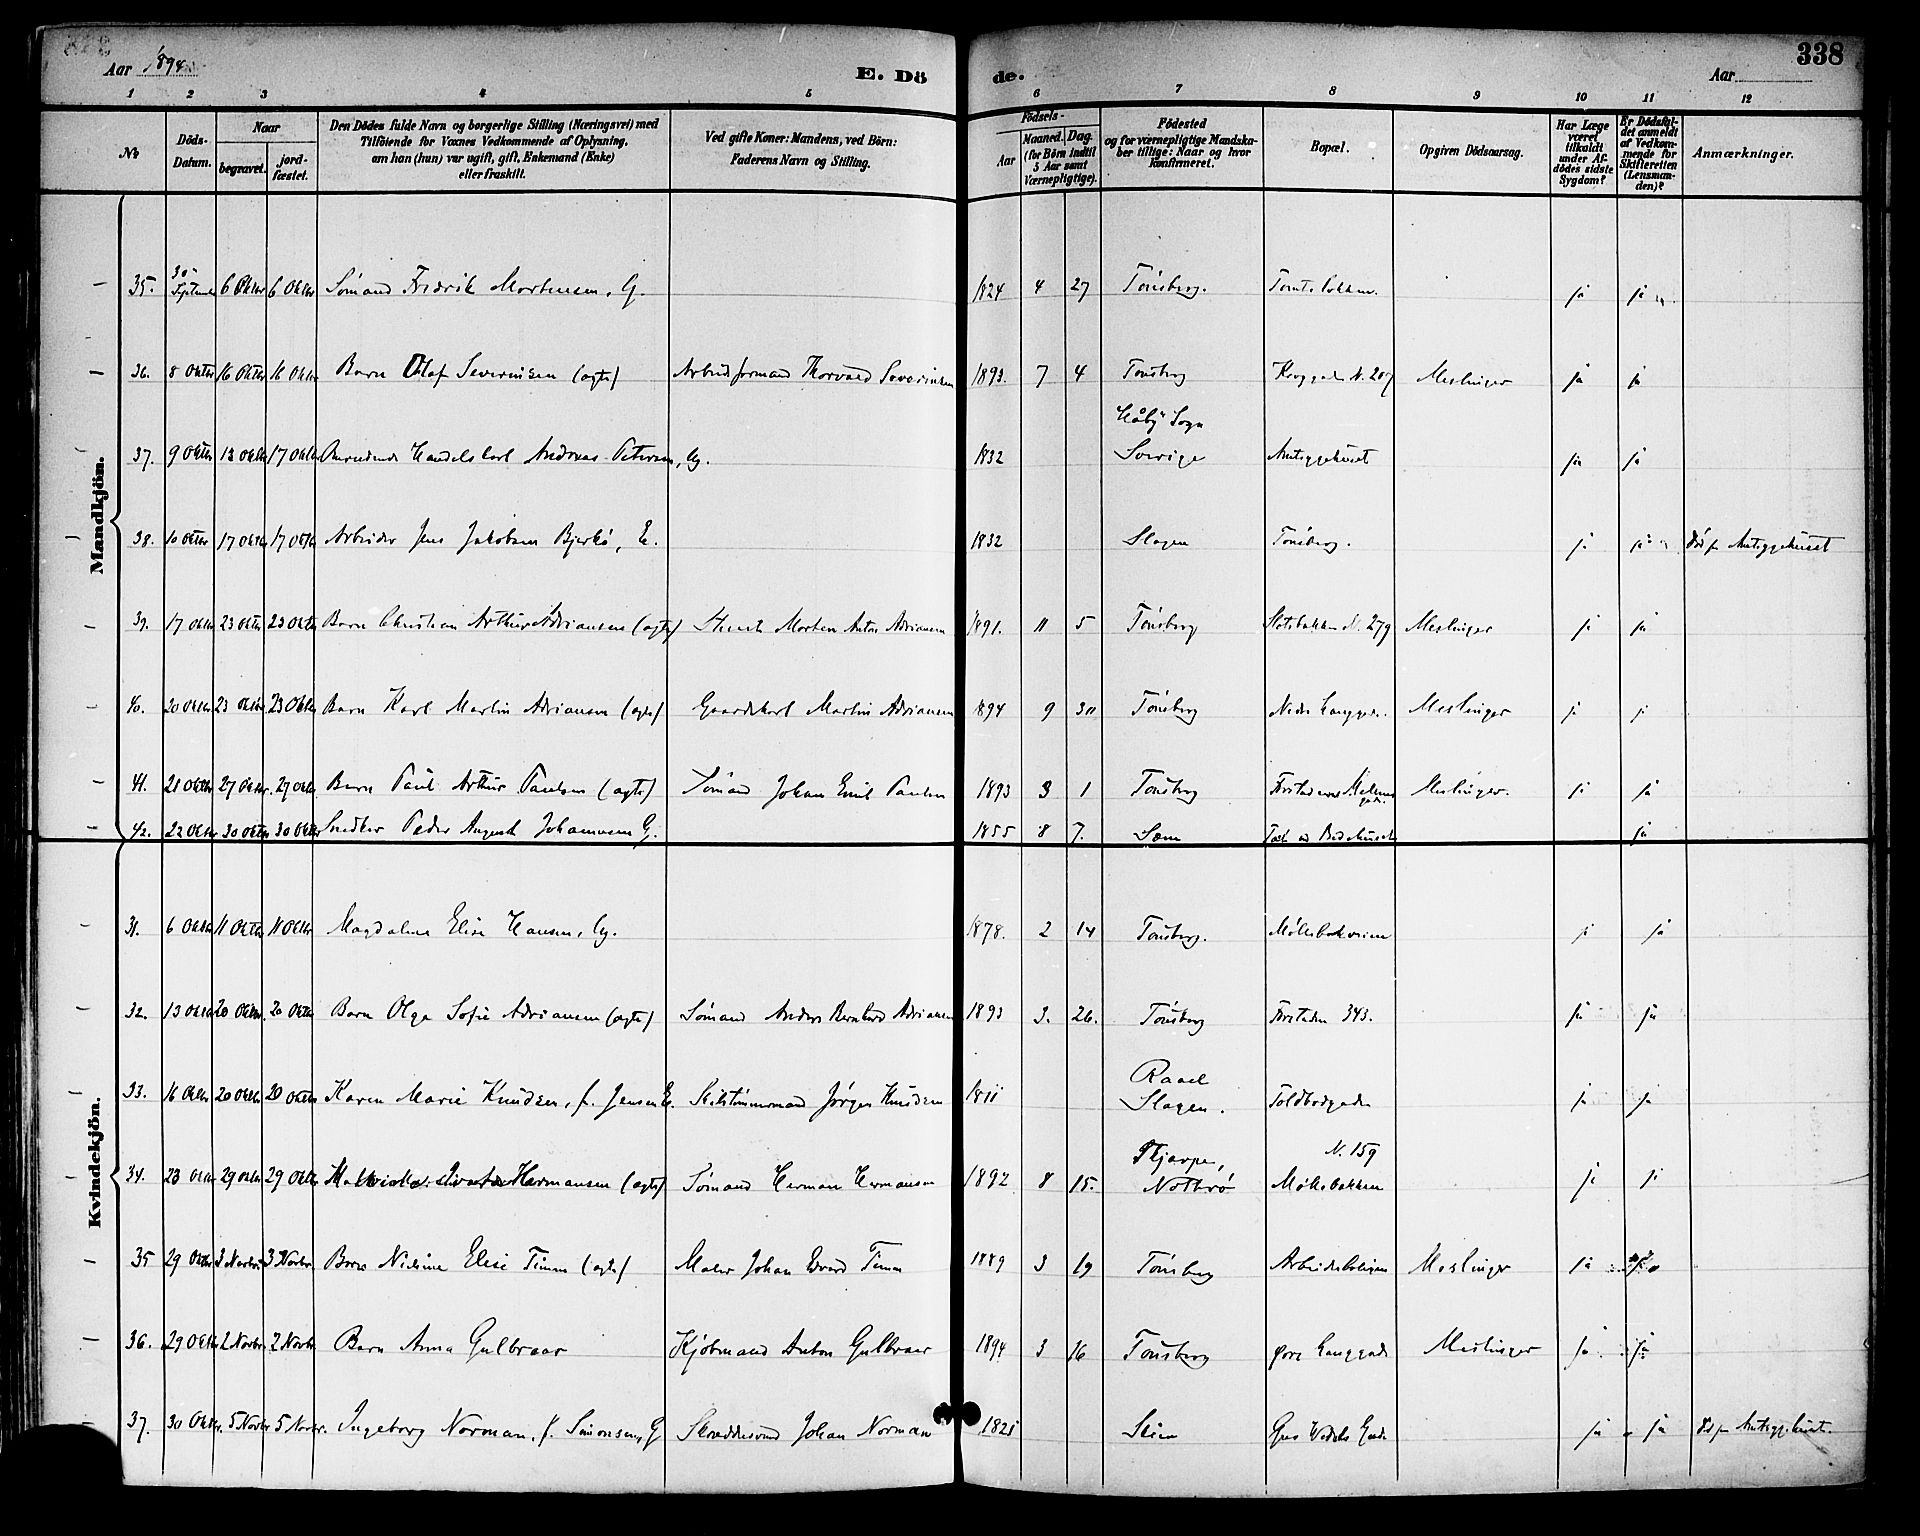 Aar 1894
E. Dö
de.
Aar
338
1 2 3 4 5 6 7 8 9 10 11 12
No
Döds-Datum.
Naar
begravet.
jord-fæstet.
Den Dödes fulde Navn og borgerlige Stilling (Næringsvei) med
Tilföiende for Voxnes Vedkommende af Oplysning,
om han (hun) var ugift, gift, Enkemand (Enke)
eller fraskilt.
Ved gifte Koner: Mandens, ved Börn:
Faderens Navn og Stilling.
Födsels-
Aar
Maaned. Dag.
(for Börn indtil
5 Aar samt
Værnepligtige).
Födested
og for værnepligtige Mandska-
ber tillige: Naar og hvor
konfirmeret.
Bopæl.
Opgiven Dödsaarsag.
Har Læge
været
tilkaldt
under Af-
dödes sidste
Sygdom?
Er Dödsfal-
det anmeldt
af Vedkom-
mende for
Skifteretten
(Lensman-
den)?
Anmærkninger.
Mandkjön.
35. 30 September 6 Oktbr 6 Oktbr Sömand Fredrik Mortensen, G. 1824 4 27 Tönsberg. ja ja
36. 8 Oktbr 16 Oktbr 16 Oktbr Barn Olaf Severinsen (ægte) Arbeidsformand Thorvald Severinsen 1893. 7 4 Tönsberg N. 207 Meslinger ja ja
Håby Sogn
37. 9 Oktbr 13 Oktbr 17 Oktbr Handelskarl Andreas Petersen, Ug. 1832 Sverige Amtssygehuset ja ja
38. 10 Oktbr 17 Oktbr 17 Oktbr Arbeider Jens Jakobsen Bjerkö, E. 1832 Slagen Tönsberg. ja ja Död på Amtssygehuset
39. 17 Oktbr 23 Oktbr 23 Oktbr Barn Christian Arthur Adriansen (ægte) Morten Anton Adriansen 1891. 11 5 Tönsberg Slotsbakken N. 279 Meslinger ja ja
40. 20 Oktbr 23 Oktbr 23 Oktbr Barn Karl Martin Adriansen (ægte) Gaardskarl Martin Adriansen 1894 9 30 Tönsberg Nedre Langgade. Meslinger ja ja
41. 21 Oktbr 27 Oktbr. 27 Oktbr. Barn Paul Arthur Paulsen (ægte) Sömand Johan Emil Paulsen 1893 3 1 Tönsberg Forstaden Meslinger. ja ja
42. 22 Oktbr 30 Oktbr 30 Oktbr Snedker Peder August Johannesen G. 1855 8 7. Sæm Tæt ved Bedehuset ja
Kvindekjön.
31. 6 Oktbr 11 Oktbr 11 Oktbr Magdalene Elise Hansen, Ug. 1878. 2 14 Tönsberg. ja ja
32. 13 Oktbr 20 Oktbr. 20 Oktbr Barn Olga Sofie Adriansen (ægte) Sömand Anders Bernhard Adriansen 1893 3. 26. Tönsberg Forstaden 343. ja ja
Raael
33. 16 Oktbr 20 Oktbr 20 Oktbr Karen Marie Knudsen, f. Jensen E. Skibstömmermand Jörgen Knudsen 1811 Slagen. Toldbodgaden ja ja
Skjærpe, N. 159
34. 23 Oktbr 29 Oktbr 29 Oktbr Hermansen (ægte) Sömand Herman Hermansen 1892 8 15. Nötterö Möllebakken ja ja
35 29 Oktbr 3 Novbr 3 Novbr. Barn Nielsine Elise Timm (ægte) Maler Johan Edvard Timm 1889 3 19 Tönsberg Arbeiderboligen Meslinger ja ja
36. 29 Oktbr 2 Novbr. 2 Novbr. Barn Anna Gulbraar Kjöbmand Anton Gulbraar 1894 3 16 Tönsberg Övre Langgade Meslinger ja ja
37. 30 Oktbr. 5 Novbr 5 Novbr. Ingeborg Norman, f. Simonsen, G Skræddersvend Johan Norman 1821 Grev Wedels Gade ja ja Död på Amtssygehuset.